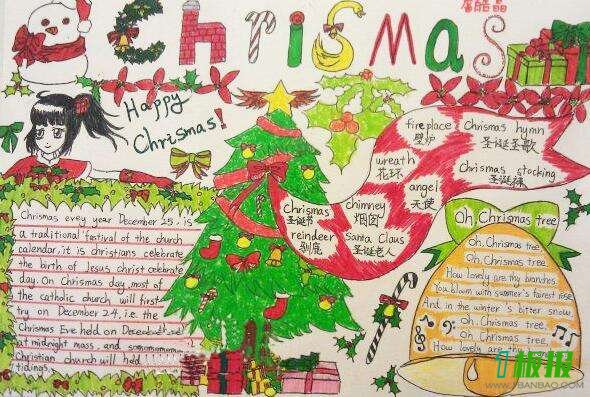 Chrismas
Happy
Chrismas!
fireplace
壁炉
Chrismas hymn
圣诞圣歌
wreath
花环
Chrismas stocking
圣诞袜
angel
天使
Chrismas
圣诞节
chimney
烟囱
reindeer
驯鹿
Santa Claus
圣诞老人
Chrismas evey year December 25, is
a traditional festival of the church
calendar, it is christians celebrate
the birth of Jesus christ celebrate
day. On Chrismas day, most of
the catholic church will first
try on December 24, i.e. the
Chrismas Eve held on December
at midnight mass, and some
Christian church will held
tidings.
Oh, Chrismas tree
Oh, Chrismas tree
Oh, Chrismas tree,
How lovely are thy branches.
You bloom with summer's fairest rose
And in the winter's bitter snow.
Oh, Chrismas tree,
Oh, Chrismas tree,
How lovely are
板报
WWW.1BANBAO.COM